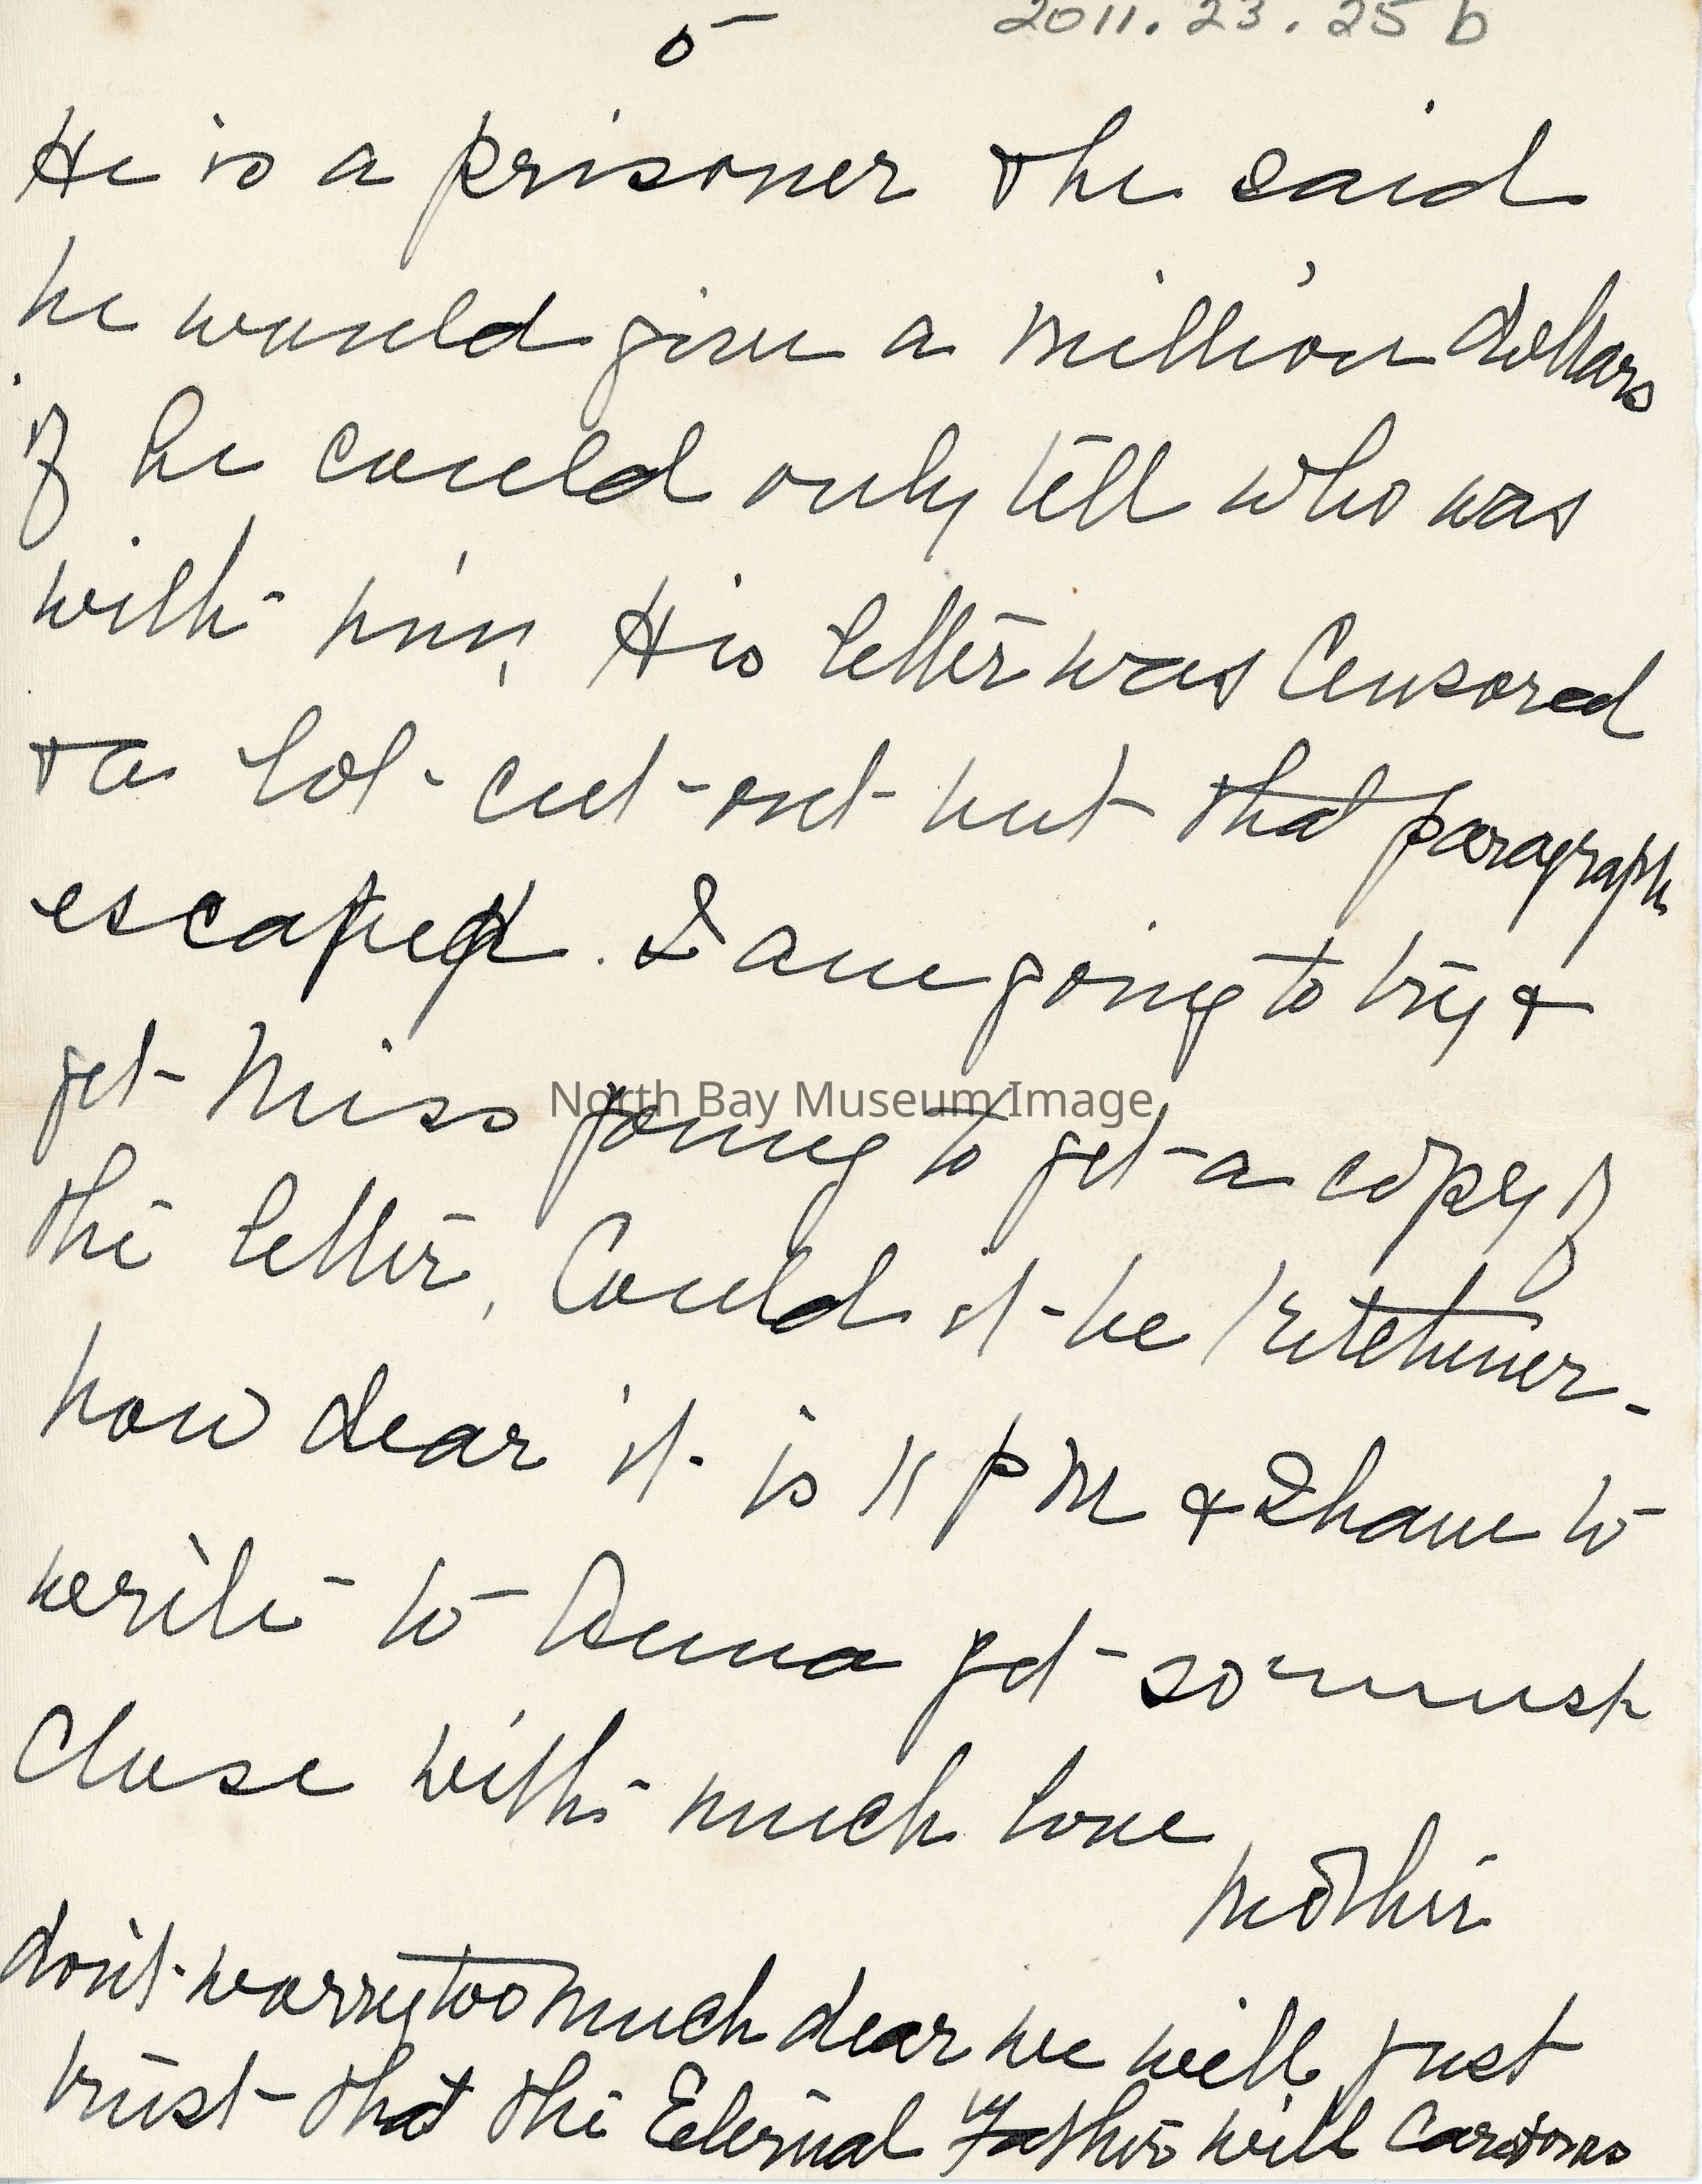 5
2011.23.25 b
He is a prisoner & he said
he would give a million dollars
if he could only tell who was
with him, His letter was Censored
& a lot cut out but that paragraph
escaped. I am going to try &
get Miss young to get a copy of
North Bay Museum Image
the letter, Could it be Kitchener.
now dear it is 11 p M & I have to
write to Anna yet so must
Close with much love
Mother
don't worry too much dear we will just
trust that the Eternal Father will Care for us